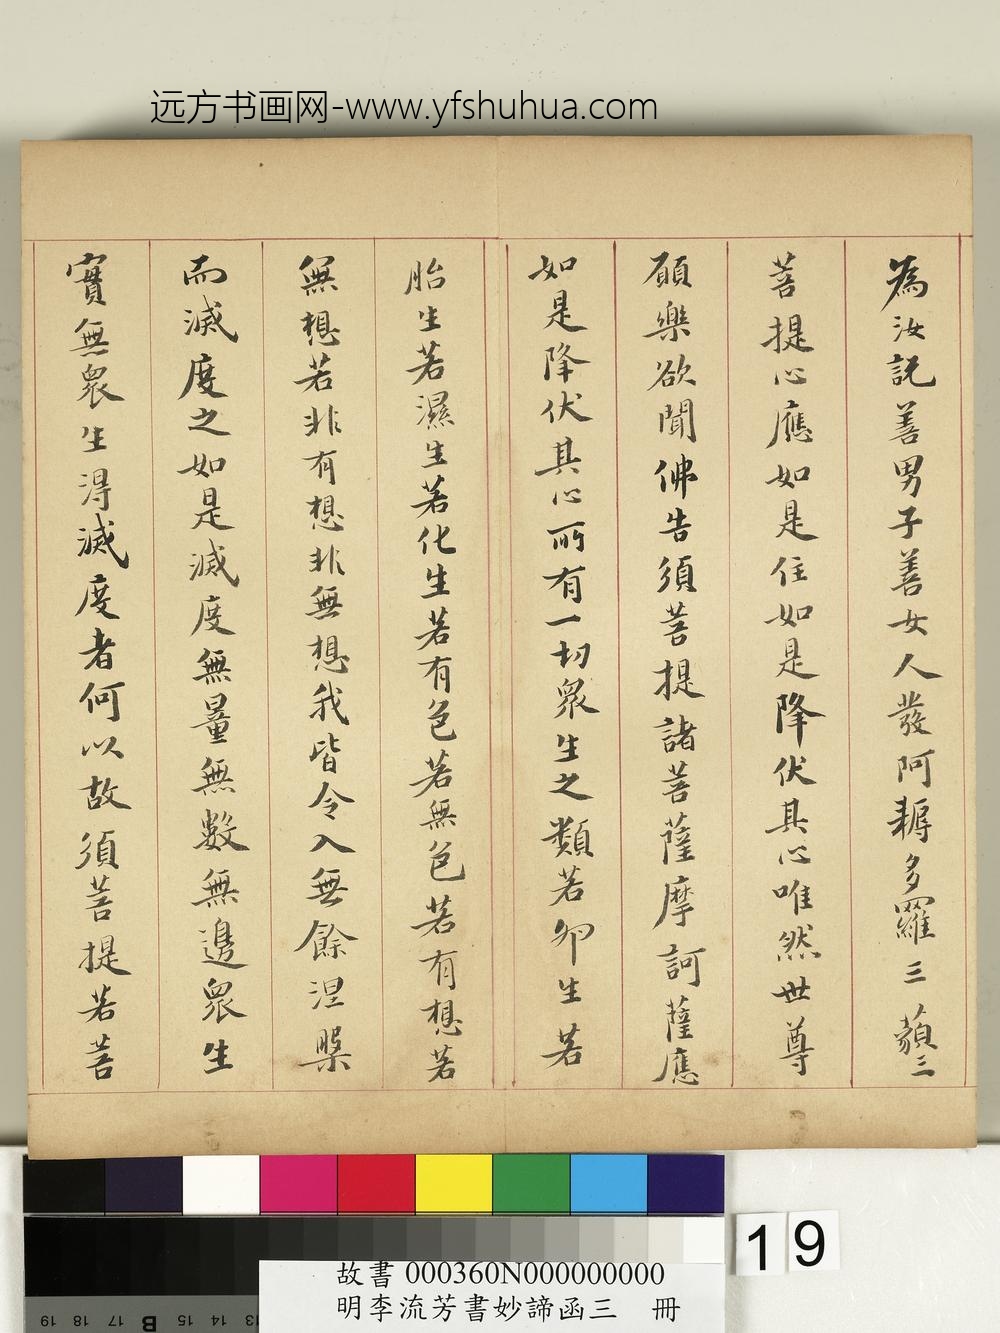 远方书画网-www.yfshuhua.com
為汝説善男子善女人發阿耨多羅三藐三
菩提心應如是住如是降伏其心唯然世尊
願樂欲聞佛告須菩提諸菩薩摩訶薩應
如是降伏其心所有一切眾生之類若卵生若
胎生若濕生若化生若有色若無色若有想若
無想若非有想非無想我皆令入無餘涅槃
而滅度之如是滅度無量無數無邊眾生
實無眾生得滅度者何以故須菩提若菩
19
故書 000360N000000000
明李流芳書妙諦函三 冊
19 18 17 B 16 15 14 13